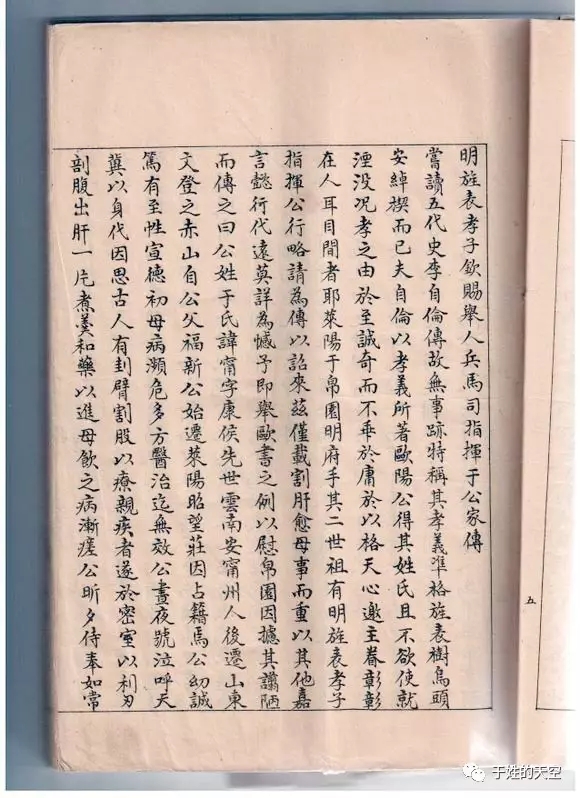 明旌表孝子欽賜舉人兵馬司指揮于公家傳
嘗讀五代史李自倫傳故無事跡特稱其孝義準格旌表樹烏頭
安綽楔而已夫自倫以孝義所著歐陽公得其姓氏且不欲使就
湮没况孝之由於至誠奇而不乖於庸於以格天心邀主眷彰彰
在人耳目間者耶萊陽于帛園明府手其二世祖有明旌表孝子
指揮公行略請為傳以詔來茲僅載割肝愈母事而重以其他嘉
言懿行代遠莫詳為憾予即舉歐書之例以慰帛園因摅其譾陋
而傳之曰公姓于氏諱甯字康侯先世雲南安甯州人後遷山東
文登之赤山自公父福新公始遷萊陽昭望莊因占籍焉公幼誠
篤有至性宣德初母病瀕危多方醫治迄無效公晝夜號泣呼天
冀以身代因思古人有封臂割股以療親疾者遂於密室以利刃
剖腹出肝一片煮羹和藥以進母飲之病漸瘥公昕夕侍奉如常
五
于姓的天空